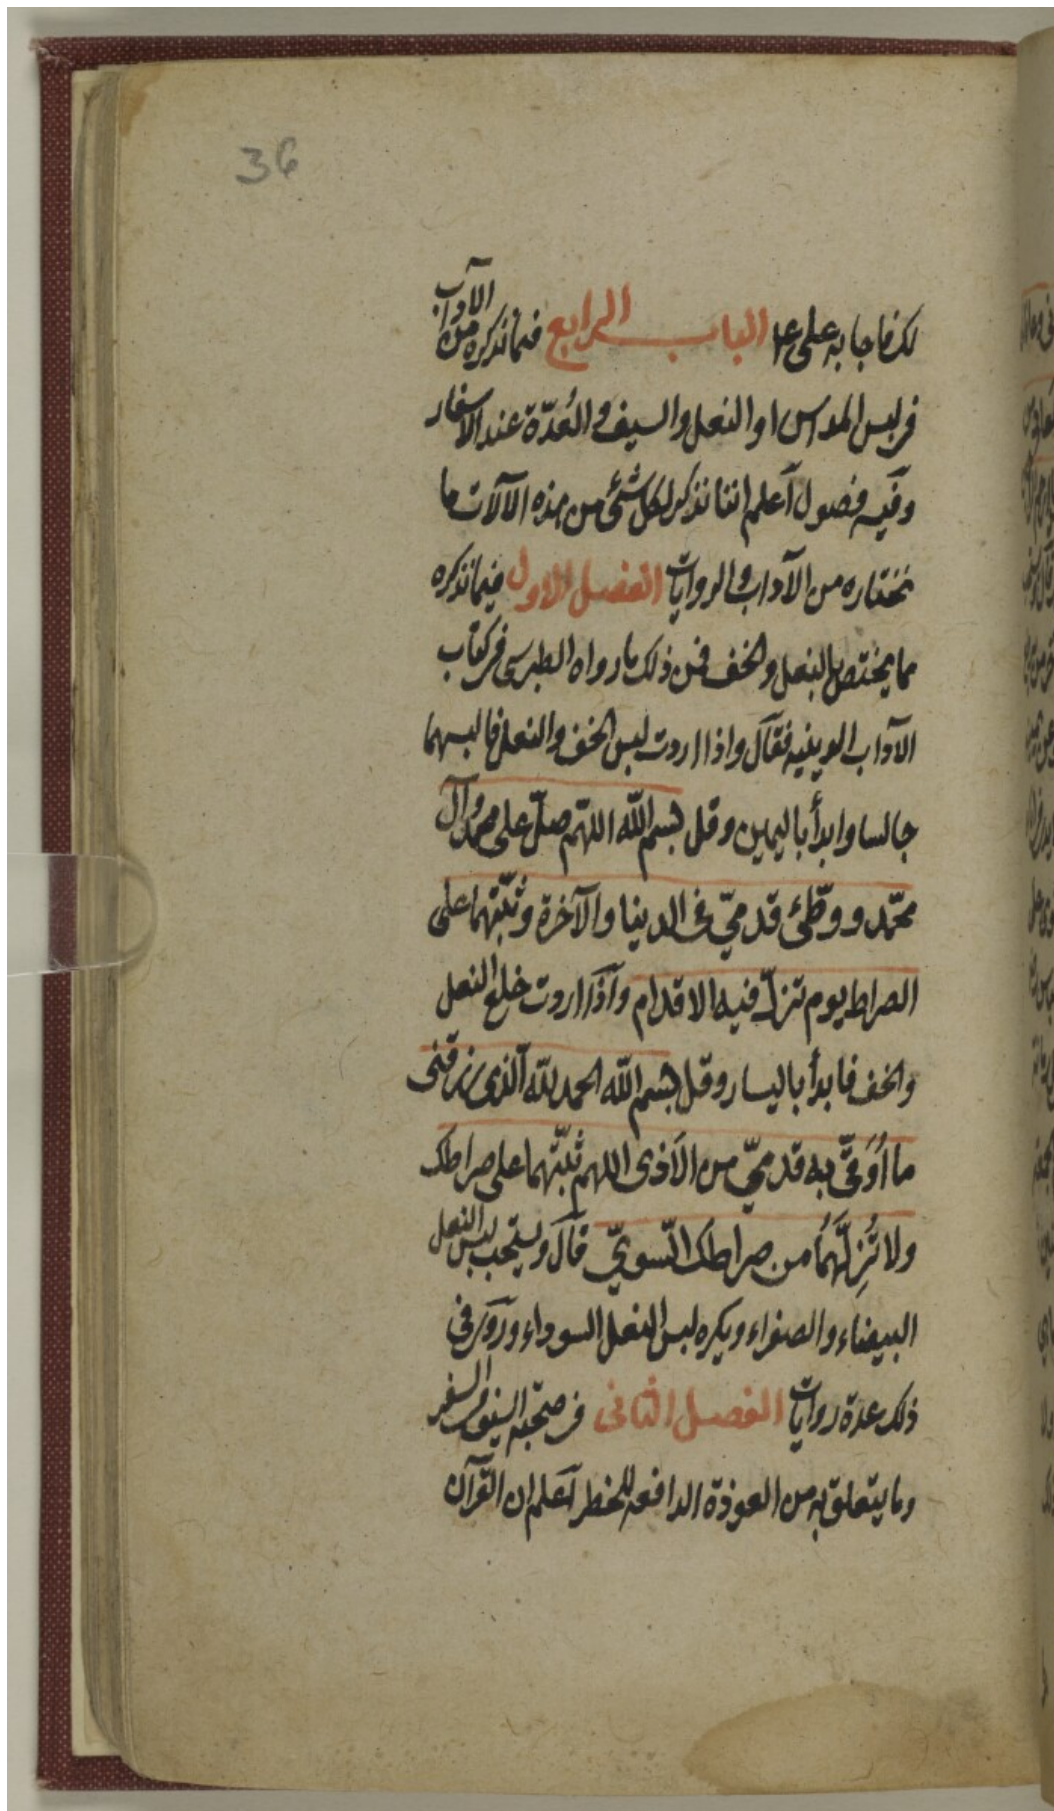 36
لك فاجابه على ع الباب الرابع فيما نذكره من الآداب
فى لبس المداس او النعل والسيف والعُدّة عند الاسفار
وفيه فصول آعلم اننا نذكر لكل شئ من هذه الآلات ما
نختاره من الآداب والروايات الفصل الاول فيما نذكره
مما يختص بالنعل والخف فمن ذلك ما رواه الطبرسى فى كتاب
الآداب الدينيه فقاَل واذا اردت لبس الخف والنعل فالبسهما
جالسا وابدأ باليمين وقل بسم الله اللهّم صلّ على محمد وآل
محمّد ووطّئ قدميّ فى الدنيا والآخرة وثبّتهما على
الصراط يوم تزلّ فيه الاقدام وآذا اردت خلع النعل
والخف فابدأ باليسار وقل بسم الله الحمد لله الّذى رزقنى
ما اُوَقّى به قدميّ من الاَذى اللهم ثبّتهما على صراطك
ولا تُزِلَّهُما من صراطك السّويّ قاَل ويستحب لبس النعل
البيضاء والصفراء ويكره لبس النعل السوداء وروى فى
ذلك عدة روايات الفصل الثانى فى صحبة السيف فى السفر
وما يتعلق به من العوذة الدافعه للخطر آعلم ان القرآن